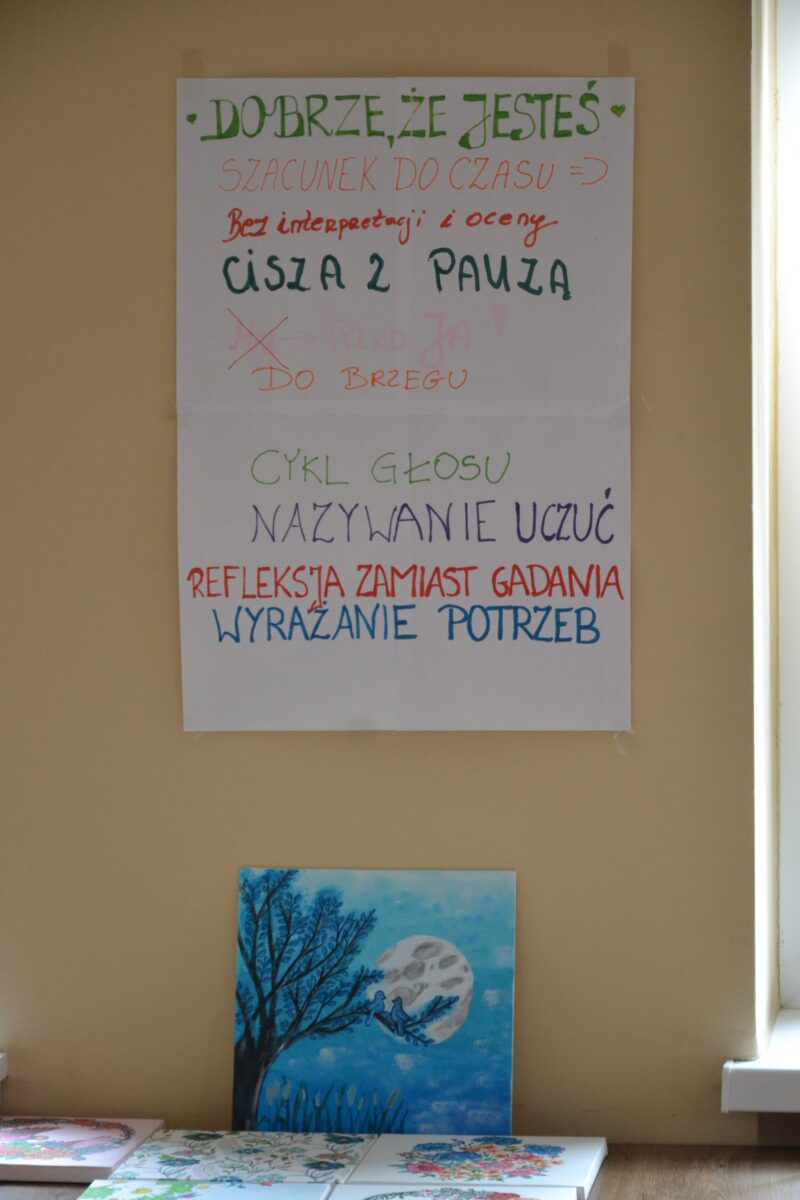 DOBRZE, ŻE JESTEŚ
SZACUNEK DO CZASU =)
Bez interpretacji i oceny
CISZA Z PAUZĄ
My → TYLKO JA!
DO BRZEGU
CYKL GŁOSU
NAZYWANIE UCZUĆ
REFLEKSJA ZAMIAST GADANIA
WYRAŻANIE POTRZEB